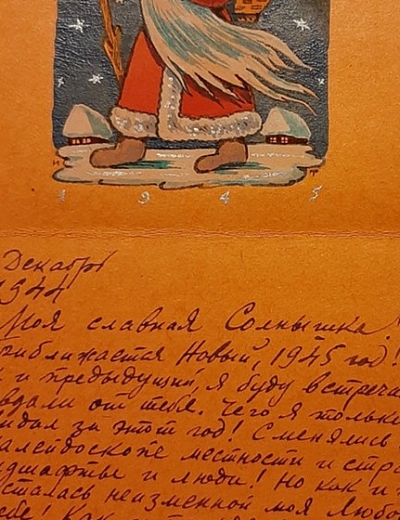 1 9 4 5
Декабрь
1944
Моя славная Солнышка!
приближается Новый, 1945 год!
к и предыдущий, я буду встреча
вдали от тебя. Чего я только
видал за этот год! Сменялись
калейдоскопе местности и стра
ндшафты и люди! Но как и
осталась неизменной моя любо
себе! Как